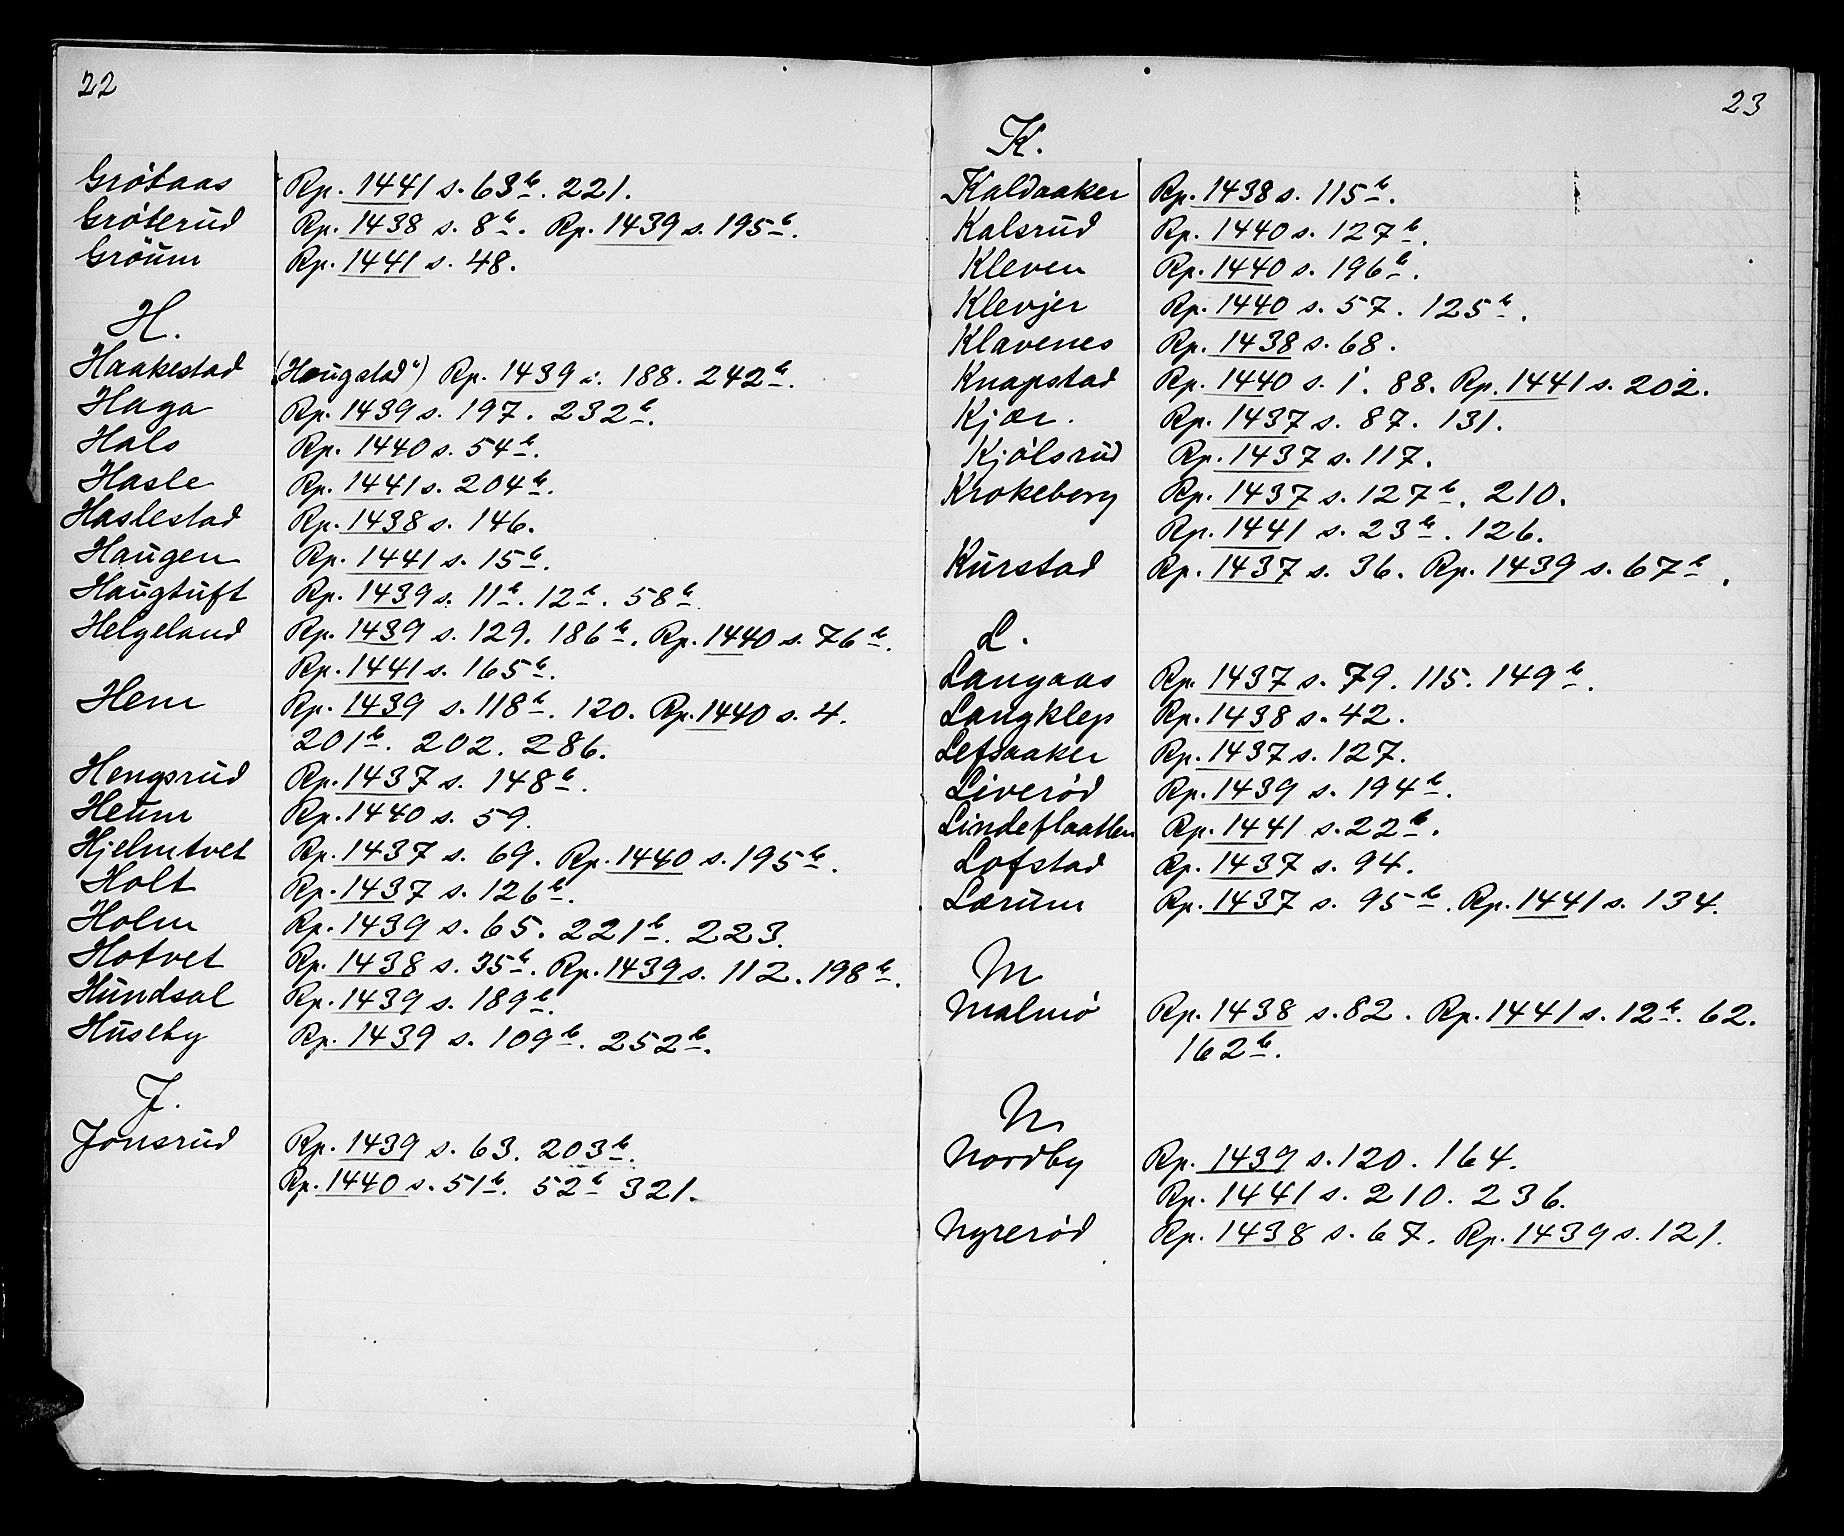 22
Grötaas Rp. 1441 s. 63b. 221.
Gröterud Rp. 1438 s. 8b. Rp. 1439 s. 195b.
Gröum Rp. 1441 s. 48.
H.
Haakestad („Haugstad“) Rp. 1439 s. 188. 242b.
Haga Rp. 1439 s. 197. 232b.
Hals Rp. 1440 s. 54b.
Hasle Rp. 1441 s. 204b.
Haslestad Rp. 1438 s. 146.
Haugen Rp. 1441 s. 15b.
Haugtuft Rp. 1439 s. 11b. 12b. 58b
Helgeland Rp. 1439 s. 129. 186b. Rp. 1440 s. 76b.
Rp. 1441 s. 165b.
Hem Rp. 1439 s. 118b. 120. Rp. 1440 s. 4.
201b. 202. 286.
Hengsrud Rp. 1437 s. 148b.
Heum Rp. 1440 s. 59.
Hjelmtvet Rp. 1437 s. 69. Rp. 1440 s. 195b.
Holt Rp. 1437 s. 126b.
Holm Rp. 1439 s. 65. 221b. 223.
Hotvet Rp. 1438 s. 35b. Rp. 1439 s. 112. 198b.
Hundsal Rp. 1439 s. 189b.
Huseby Rp. 1439 s. 109b. 252b.
J.
Jonsrud Rp. 1439 s. 63. 203b.
Rp. 1440 s. 51b. 52b 321.
23
K.
Kaldaaker Rp. 1438 s. 115b.
Kalsrud Rp. 1440 s. 127b.
Kleven Rp. 1440 s. 196b.
Klevjer Rp. 1440 s. 57. 125b.
Klavenes Rp. 1438 s. 68.
Knapstad Rp. 1440 s. 1. 88. Rp. 1441 s. 202.
Kjær. Rp. 1437 s. 87. 131.
Kjølsrud Rp. 1437 s. 117.
Krokeberg Rp. 1437 s. 127b. 210.
Rp. 1441 s. 23b. 126.
Kurstad Rp. 1437 s. 36. Rp. 1439 s. 67b.
L.
Langaas Rp. 1437 s. 79. 115. 149b.
Langklep Rp. 1438 s. 42.
Lefsaaker Rp. 1437 s. 127.
Liverød Rp. 1439 s. 194b.
Lindeflaatten Rp. 1441 s. 22b.
Lofstad Rp. 1437 s. 94.
Lærum Rp. 1437 s. 95b. Rp. 1441 s. 134.
M
Malmø Rp. 1438 s. 82. Rp. 1441 s. 12b. 62.
162b.
N
Nordby Rp. 1439 s. 120. 164.
Rp. 1441 s. 210. 236.
Nyrerød Rp. 1438 s. 67. Rp. 1439 s. 121.